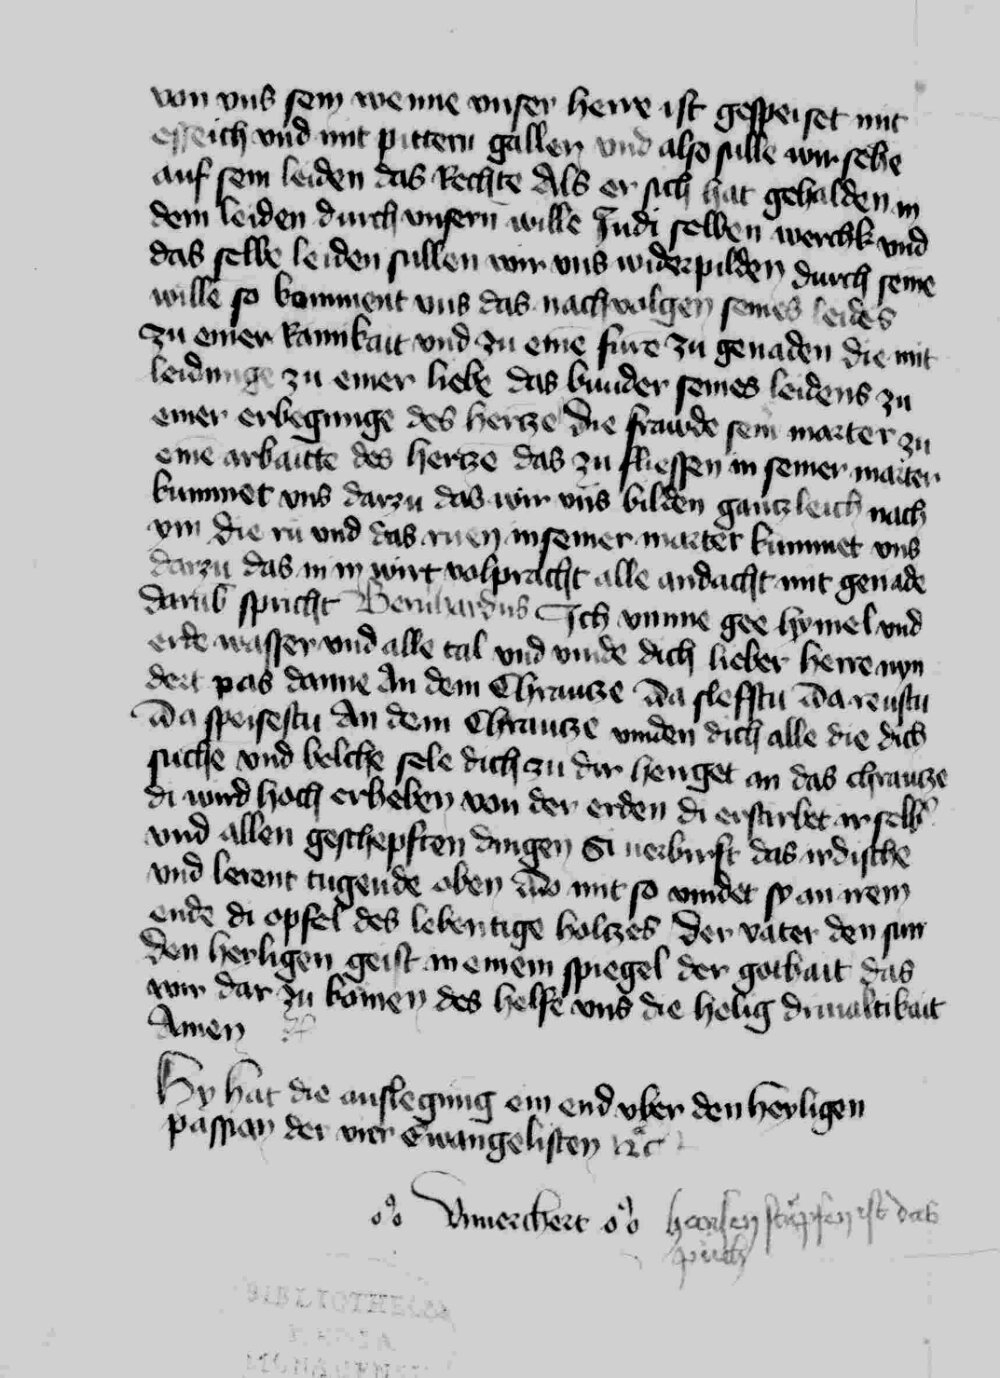 von vns sein wenne vnser herre ist gespeiset mit
esseich vnd mit pittern gallen vnd also sulle wir sehe
auf sein leiden das Rechte Als er sich hat gehalden in
dem leiden durch vnsern wille Indi selben werchk vnd
das selbe leiden sullen wir vns widerpilden durch seine
wille so komment vns das nachvolgen seines leides
zu einer Rainikait vnd zu eine fure zu genaden die mit
leidunge zu einer liebe das bunder seines leidens zu
einer erbegunge des hertze die frawde sein marter zu
eine arbaitte des hertze das zu fliessen in seiner marter
kummet vns darzu das wir vns bilden gantzleich nach
vm die ru vnd das ruen in seiner marter kummet vns
darzu das in im wirt volpracht alle andacht mit genade
darub spricht Bernhardus Ich vmme gee hymel vnd
erde wasser vnd alle tal vnd vinde dich lieber herre nyn
dert pas danne An dem Chrautze Da slefstu Da reustu
Da speisestu An dem Chrautze vinden dich alle die dich
suche vnd belche sele dich zu dir henget an das chrautze
di wird hoch erheben von der erden di erstirbet ir selb
vnd allen geschepften dingen Si verbirft das irdische
vnd lerent tugende oben Do mit so vindet sy an irem
ende di opfel des lebentige holtzes Der vater den sun
den heyligen geist in einem spiegel der gotbait das
wir dar zu komen des helfe vns die helig driualtikait
Amen
Hy hat die auslegung ein end vber den heyligen
passian der vier Ewangelisten etc
Vmerchert
ist das
puch
BIBLIOTHECA
REGIA
MONACENSIS